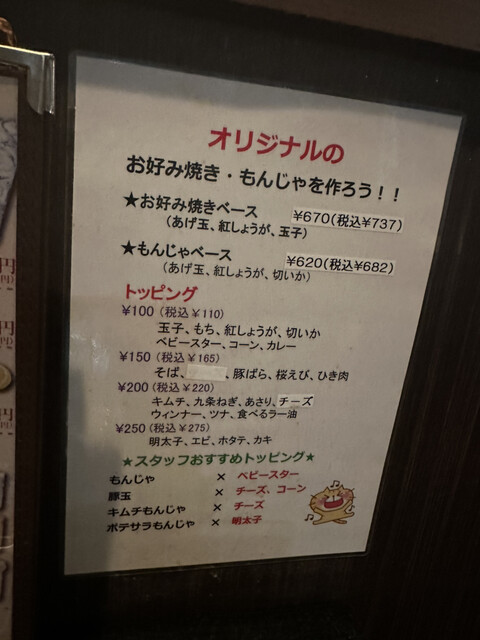 オリジナルの
お好み焼き・もんじゃを作ろう！！
★お好み焼きベース ¥670(税込¥737)
(あげ玉、紅しょうが、玉子)
★もんじゃベース ¥620(税込¥682)
(あげ玉、紅しょうが、切いか)
トッピング
¥100 (税込¥110)
玉子、もち、紅しょうが、切いか
ベビースター、コーン、カレー
¥150 (税込¥165)
そば、 、豚ばら、桜えび、ひき肉
¥200 (税込¥220)
キムチ、九条ねぎ、あさり、チーズ
ウィンナー、ツナ、食べるラー油
¥250 (税込¥275)
明太子、エビ、ホタテ、カキ
★スタッフおすすめトッピング★
もんじゃ × ベビースター
豚玉 × チーズ、コーン
キムチもんじゃ × チーズ
ポテサラもんじゃ × 明太子
円
円
円